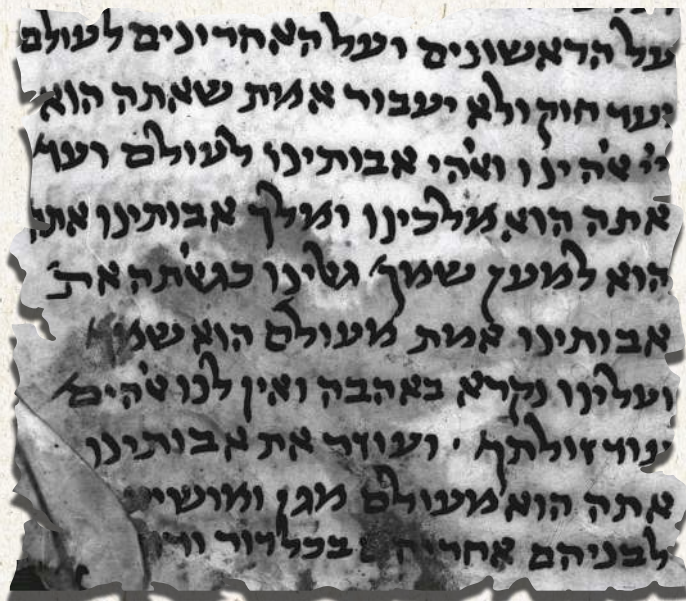 על הראשונים ועל האחרונים לעולם
ועד חוק ולא יעבור אמת שאתה הוא
ייי אלהינו ואלהי אבותינו לעולם ועד
אתה הוא מלכינו ומלך אבותינו אתה
הוא למען שמך גאלינו כגאלתה את
אבותינו אמת מעולם הוא שמך
ועלינו נקרא באהבה ואין לנו אלהים
עוד זולתך · ועוזר את אבותינו
אתה הוא מעולם מגן ומושיע
לבניהם אחריהם בכל דור